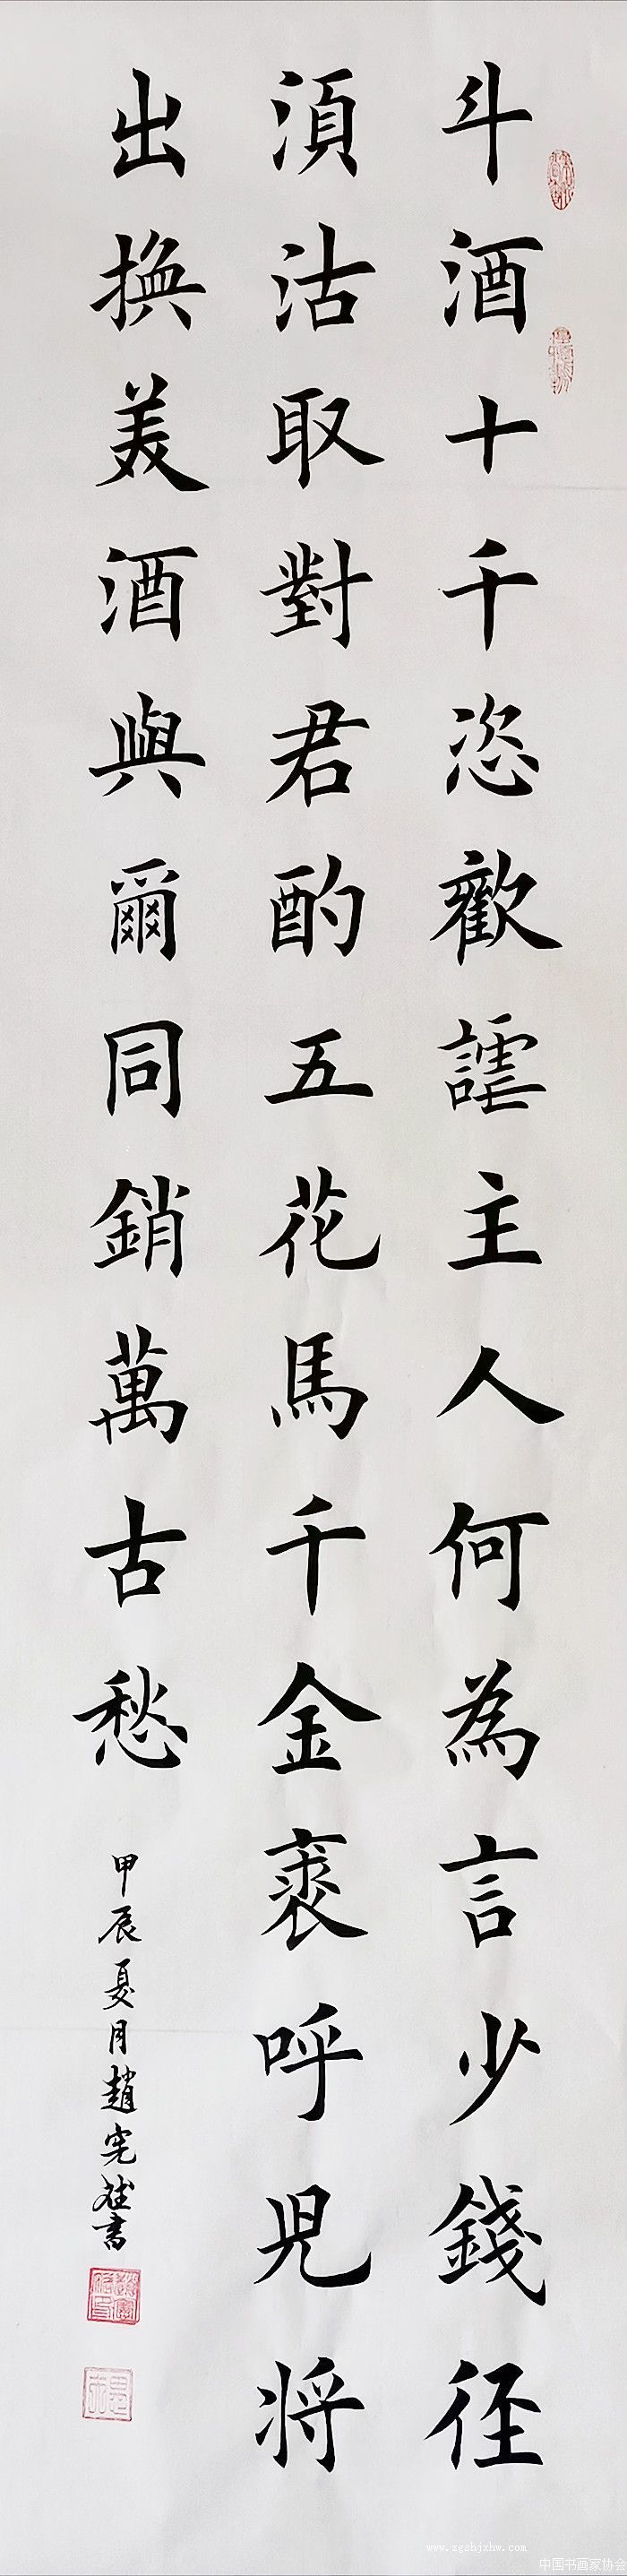 斗酒十千恣歡謔主人何為言少錢径
須沽取對君酌五花馬千金裘呼児将
出換美酒與爾同銷萬古愁
甲辰夏月趙宪 書
www.zgshjzhw.com
中国书画家协会